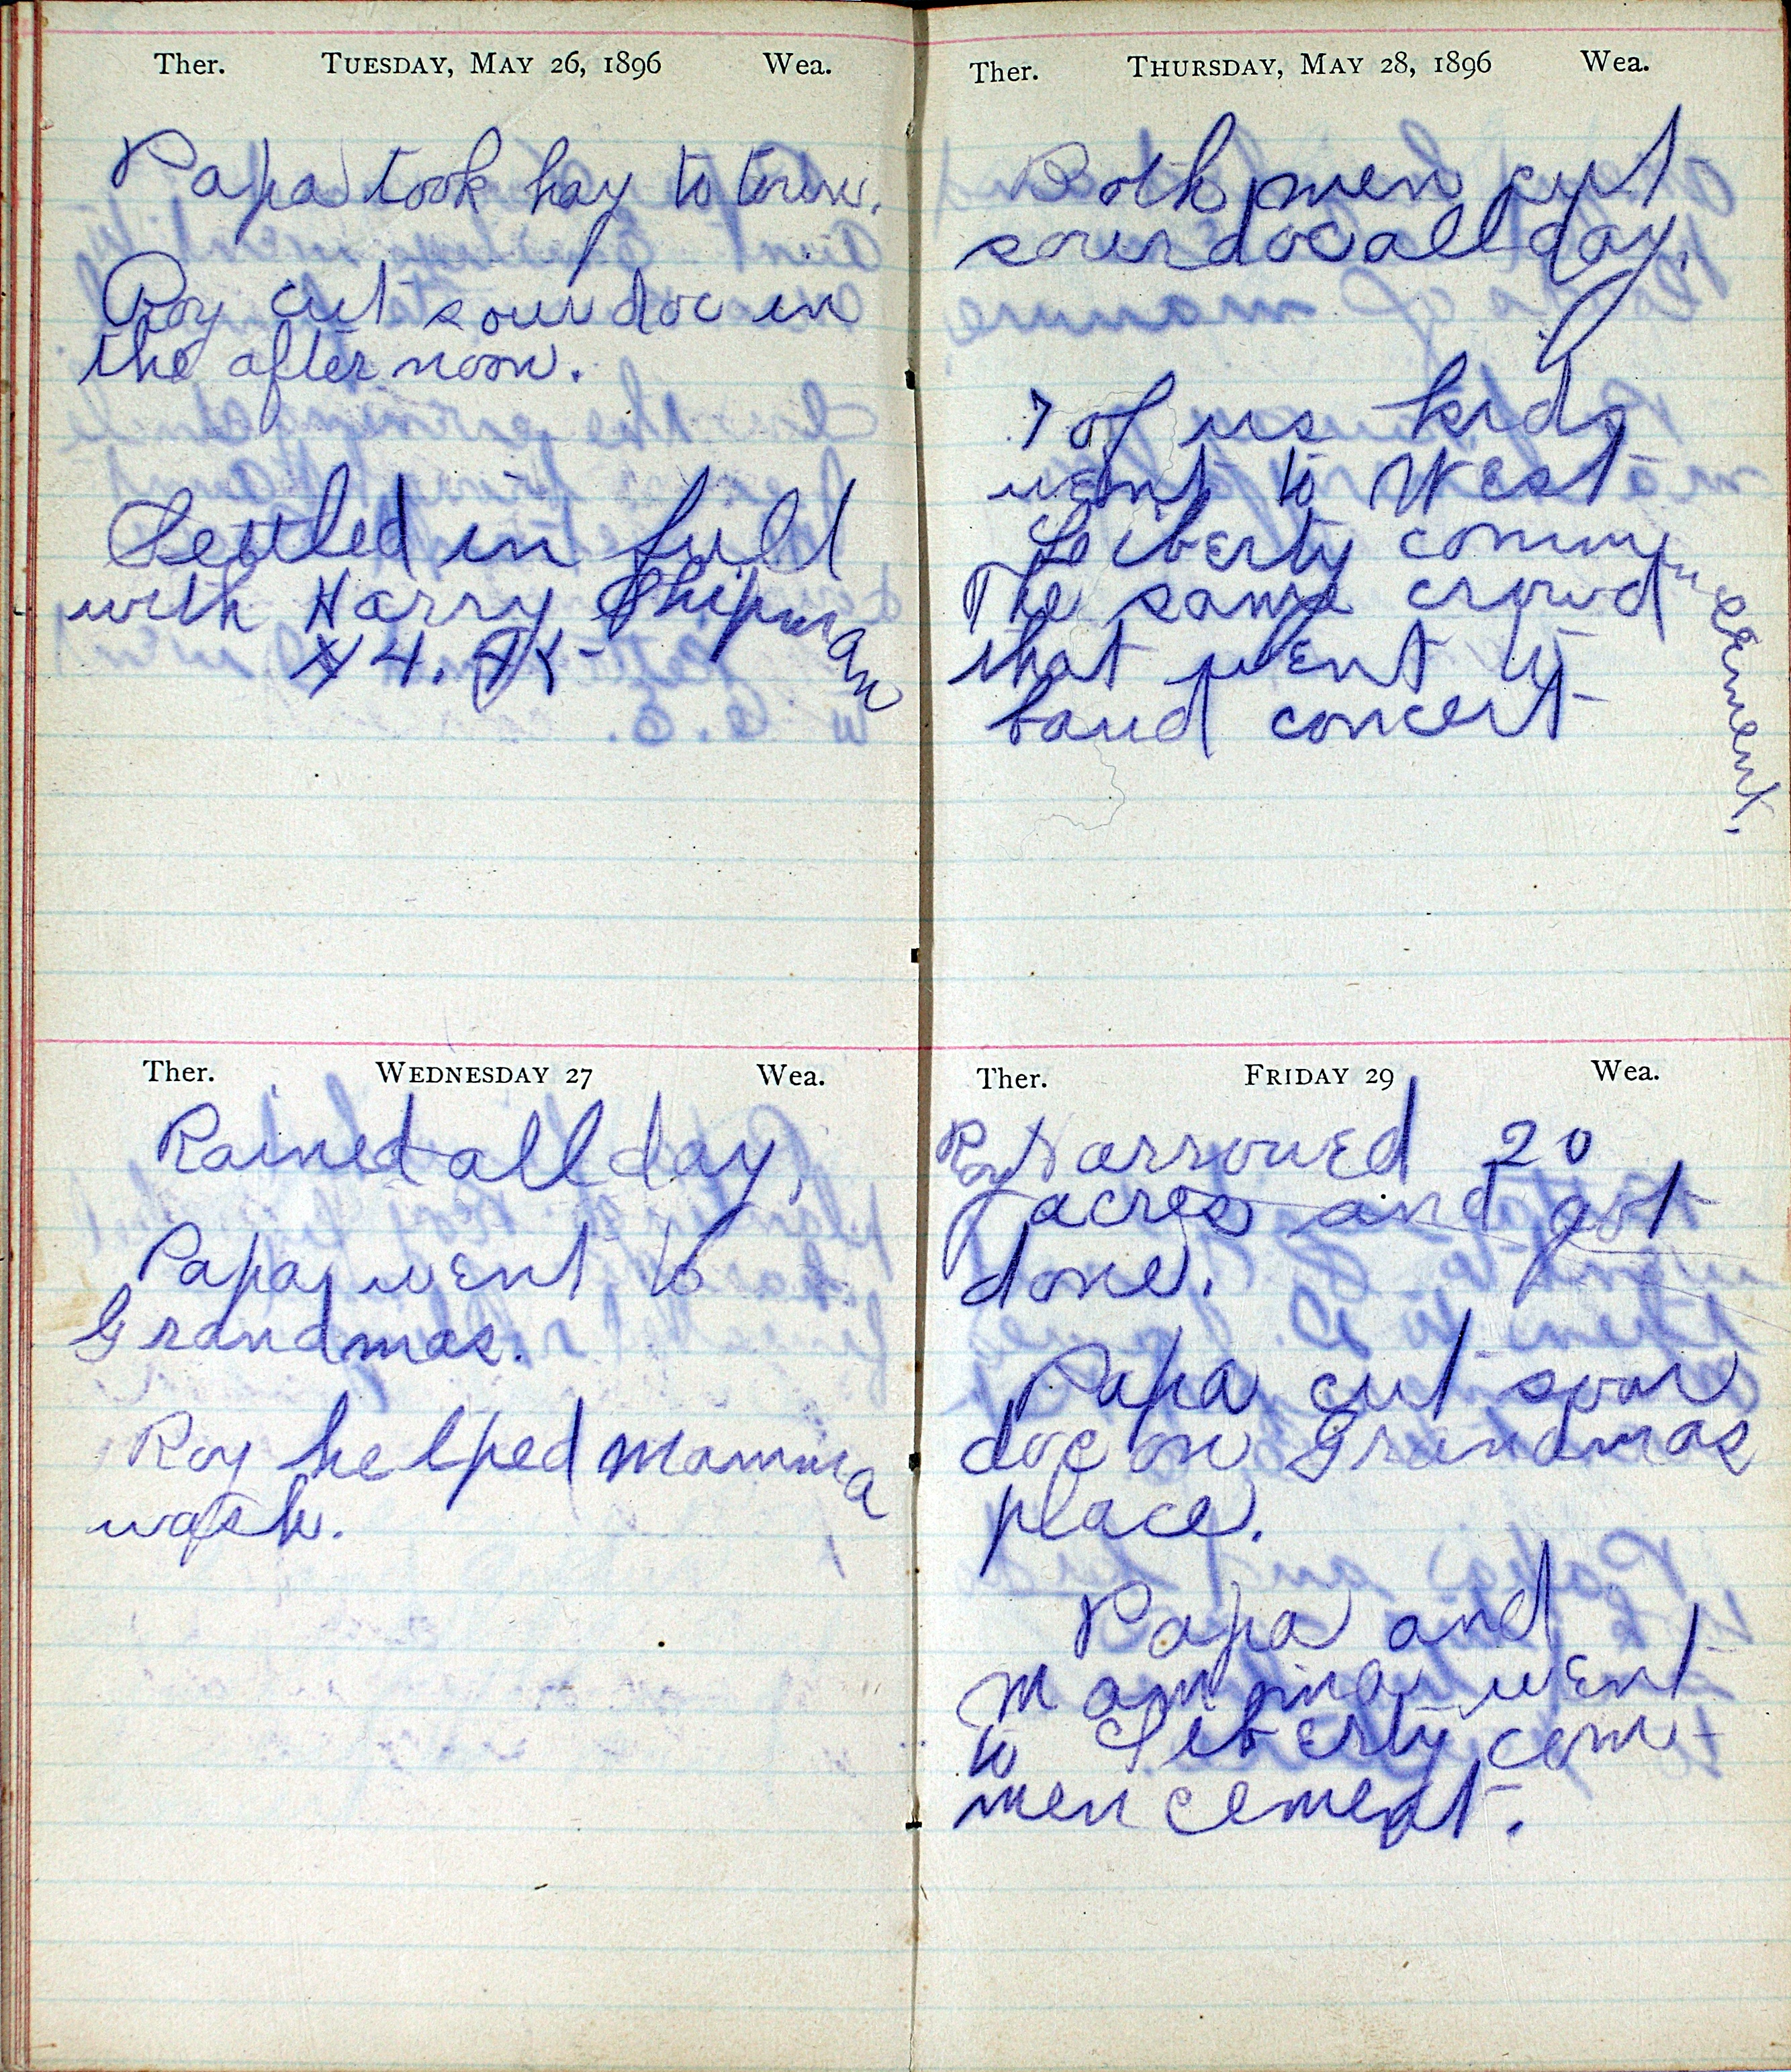 Ther. TUESDAY, MAY 26, 1896 Wea.
Papa took hay to town.
Roy cut sour doc in
the after noon.
Settled in full
with Harry Shipman
Ther. WEDNESDAY 27 Wea.
Rained all day.
Papa went to
Grandmas.
Roy helped mamma
wash.
Ther. THURSDAY, MAY 28, 1896 Wea.
Both men cut
sour doc all day.
7 of us kids
went to West
Leiberty commencement.
The same crowd
that went to
band concert
Ther. FRIDAY 29 Wea.
Roy harrowed 20
acres and got
done.
Papa cut sour
doc on Grandmas
place.
Papa and
Mamma went
to Leiberty com-
mencement.